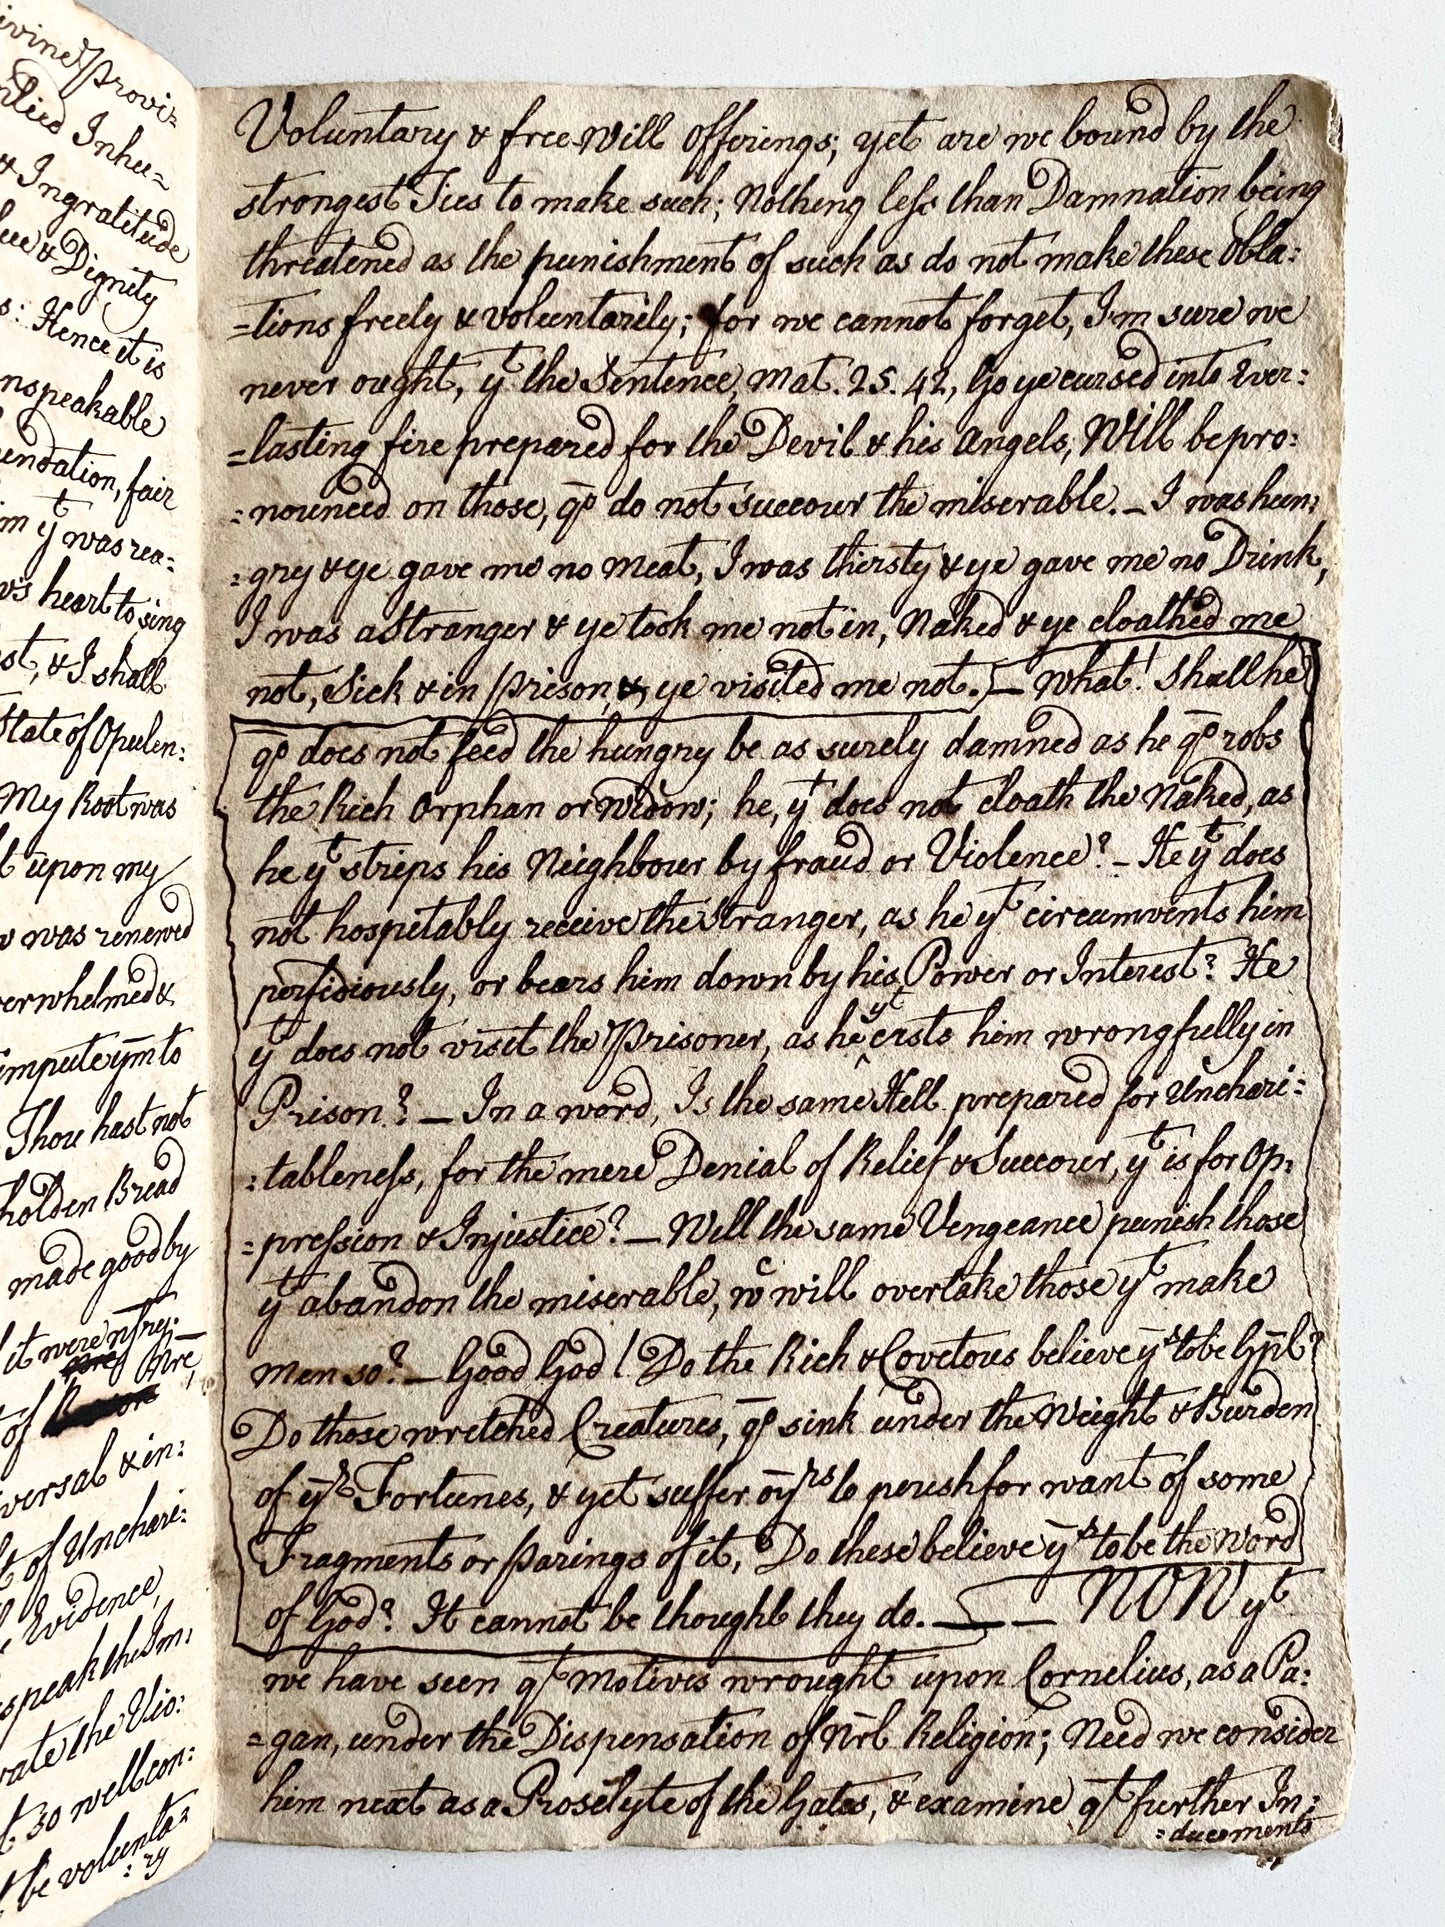 ivine Provi-
plied Inhu-
& Ingratitude
lue & Dignity
s: Hence it is
nspeakable
undation, fair
m yt was rea:
w's heart to sing
st, & I shall
State of Opulen:
My Root was
t upon my
w was renewed
verwhelmed &
impute ym̄ to
Thou hast not
holden Bread
made good by
it were
of
versal & in:
t of Unchari:
Evidence,
speak the Im:
rate the Vio:
t so well con:
t be volunta:
:ry
Voluntary & free Will offerings; yet are we bound by the
strongest Ties to make such; Nothing less than Damnation being
threatened as the punishment of such as do not make these Obla:
=tions freely & voluntarily; for we cannot forget, I'm sure we
never ought, yt the Sentence, Mat. 25. 42, Go ye cursed into Ever:
=lasting fire prepared for the Devil & his Angels, Will be pro:
:nounced on those, qo do not succour the miserable. – I was hun:
:gry & ye gave me no Meat, I was thirsty & ye gave me no Drink,
I was a Stranger & ye took me not in, Naked & ye cloathed me
not, Sick & in prison, & ye visited me not. – What! Shall he
qo does not feed the hungry be as surely damned as he qo robs
the Rich Orphan or Widow; he, yt does not cloath the Naked, as
he yt strips his Neighbour by fraud or Violence? – He yt does
not hospitably receive the Stranger, as he yt circumvents him
perfidiously, or bears him down by his Power or Interest? He
yt does not visit the Prisoner, as he yt casts him wrongfully in
Prison? – In a word, Is the same Hell prepared for Unchari:
:tableness, for the mere Denial of Relief & Succour, yt is for Op:
=pression & Injustice? – Will the same Vengeance punish those
yt abandon the miserable, wc will overtake those yt make
Men so? – Good God! Do the Rich & Covetous believe ys̄ to be Gp̄l?
Do those wretched Creatures, qo sink under the Weight & Burden
of yr̄ Fortunes, & yet suffer oyrs to perish for want of some
Fragments or parings of it, Do these believe ys̄ to be the Word
of God? It cannot be thought they do. – – NOW yt
we have seen qt Motives wrought upon Cornelius, as a Pa:
=gan, under the Dispensation of Nrl Religion; Need we consider
him next as a Proselyte of the Gates, & examine qt further In:
:ducements